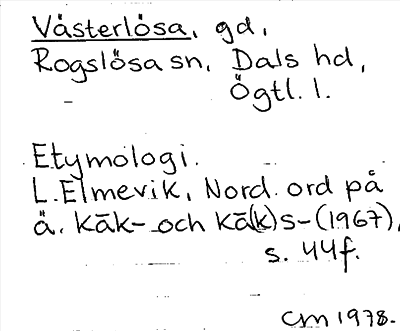 Västerlösa, gd,
Rogslösa sn, Dals hd,
Ögtl. l.
Etymologi.
L. Elmevik, Nord. ord på
ä. kāk- och kā(k)s- (1967),
s. 44f.
CM 1978.